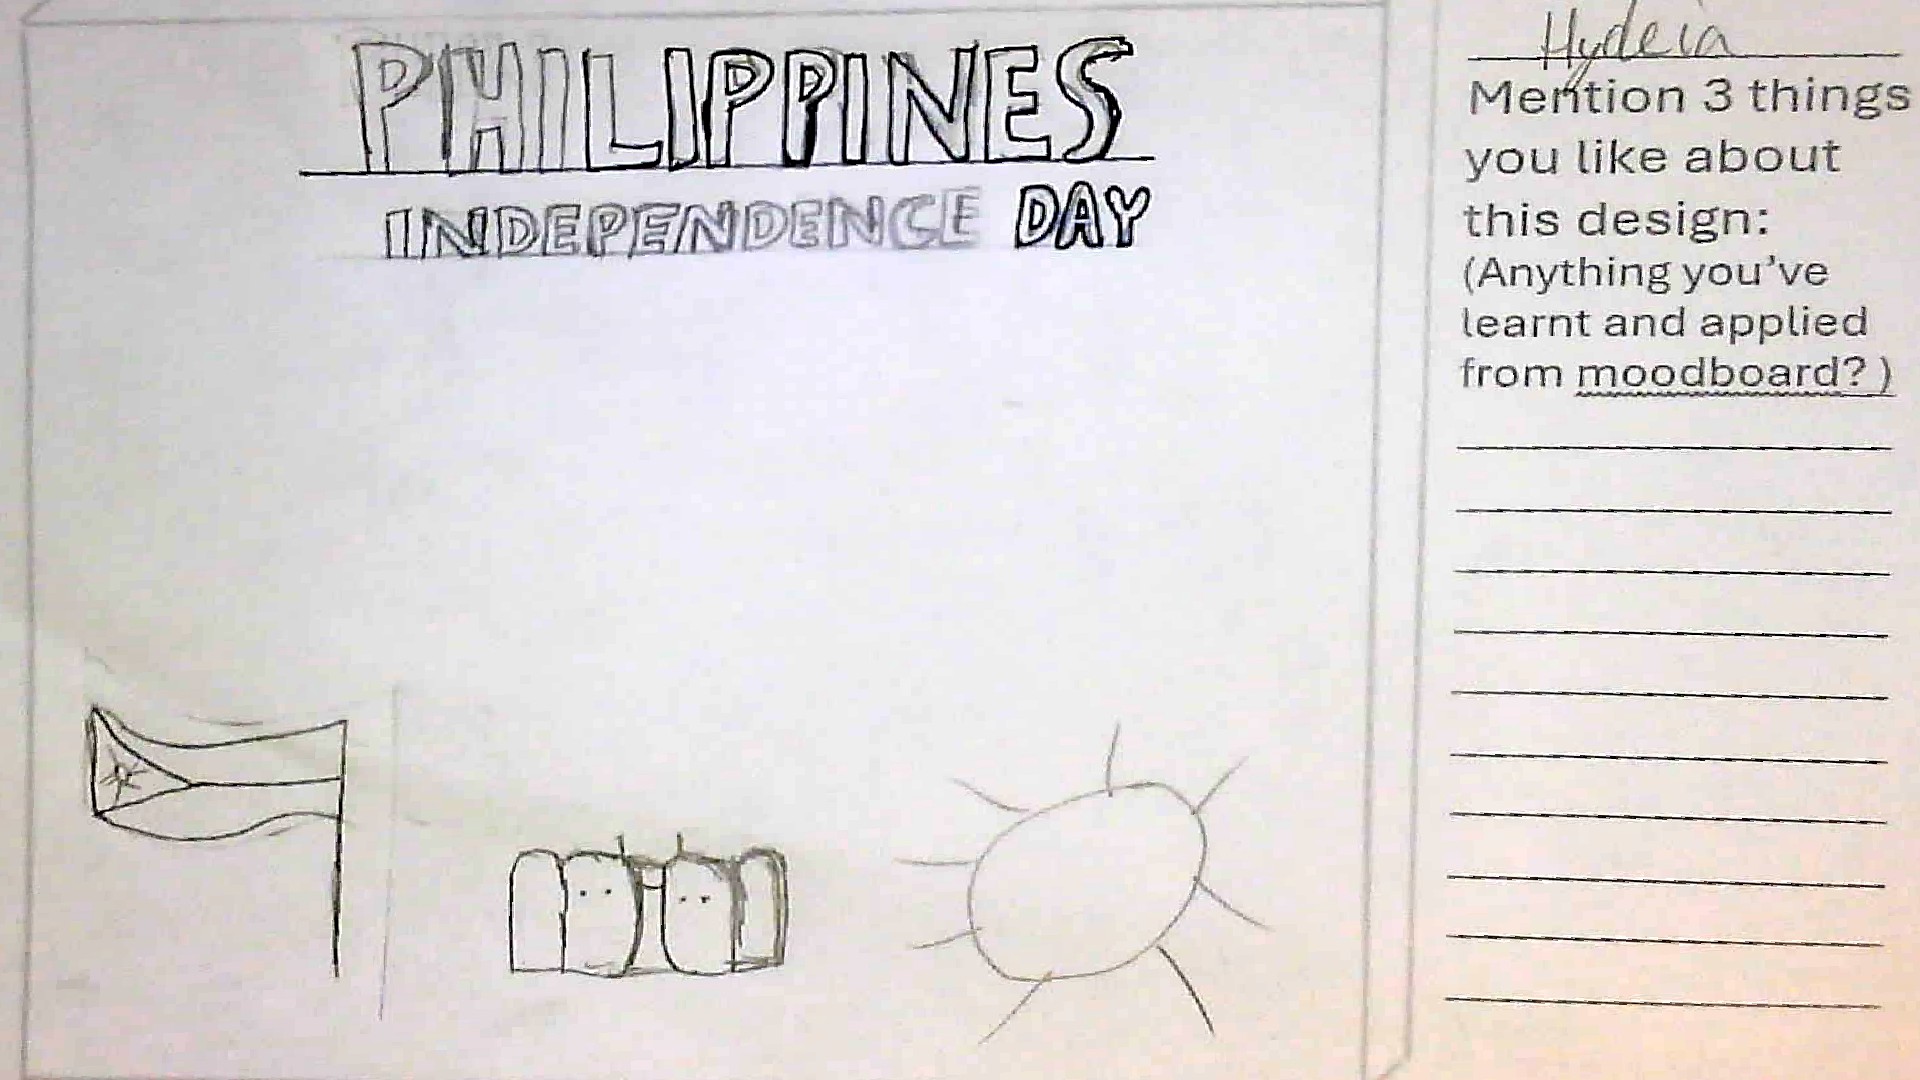 PHILIPPINES
INDEPENDENCE DAY
Hydeia
Mention 3 things
you like about
this design:
(Anything you've
learnt and applied
from moodboard? )